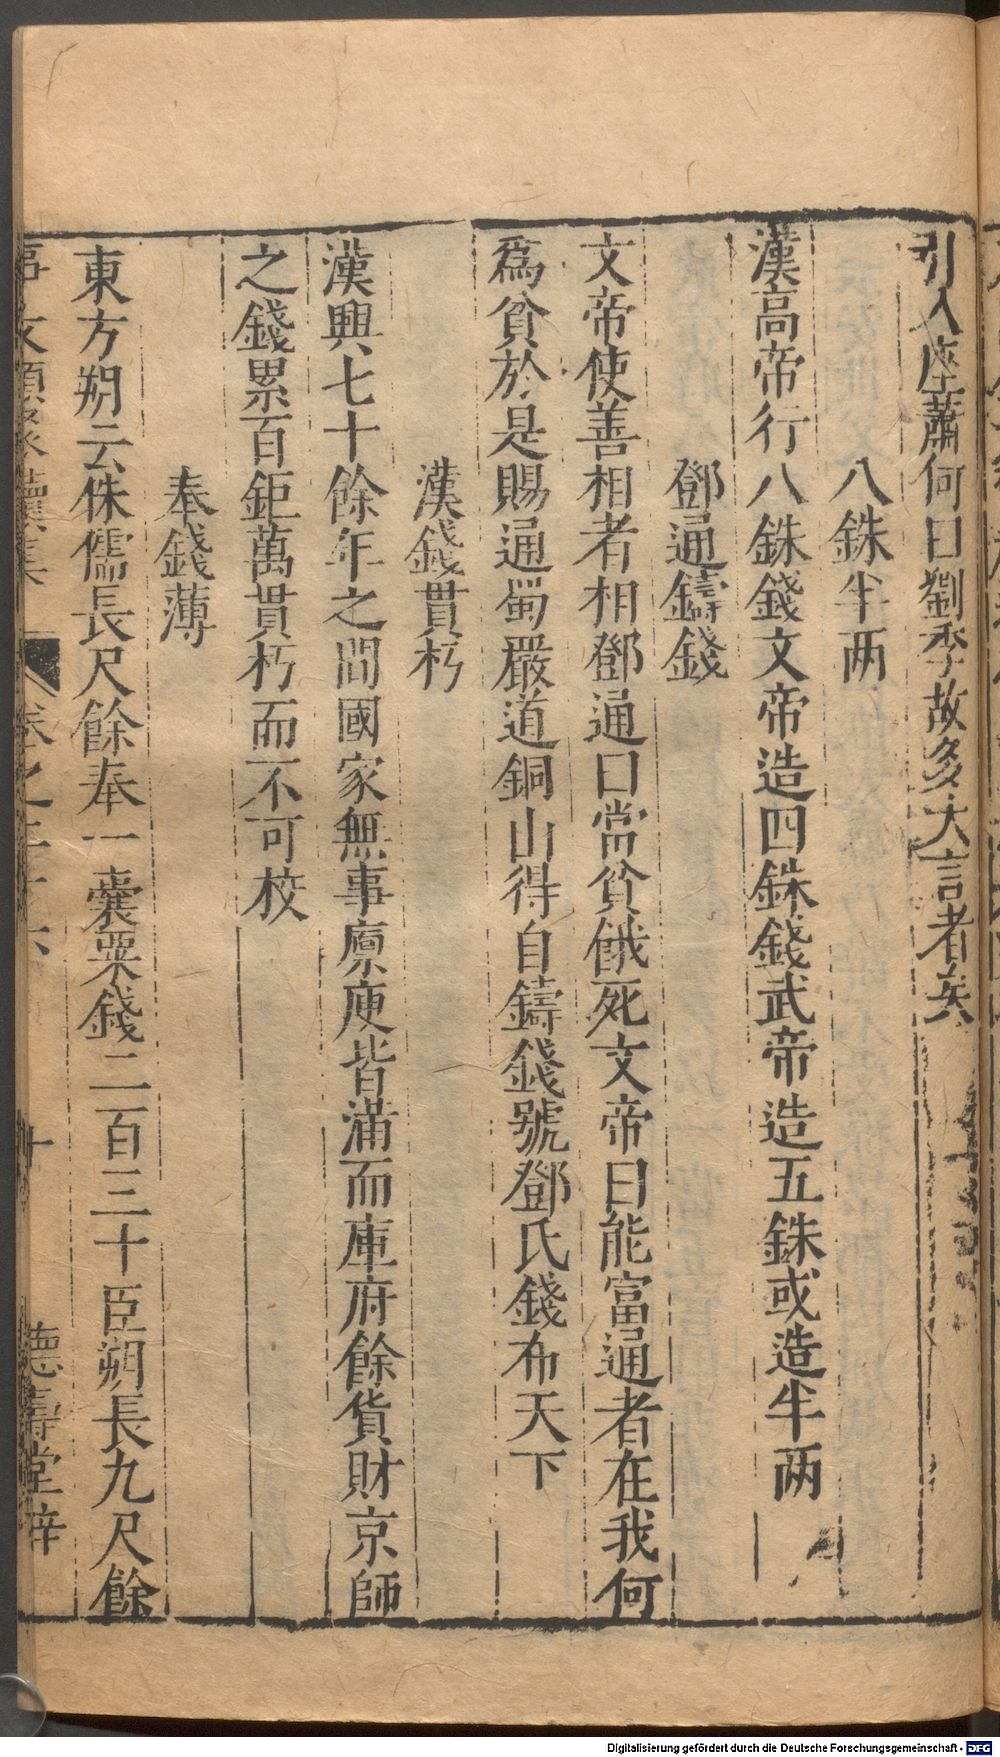 引入座蕭何曰劉季故多大言者矣
八銖半两
漢高帝行八銖錢文帝造四銖錢武帝造五銖或造半两
鄧通鑄錢
文帝使善相者相鄧通曰當貧餓死文帝曰能富通者在我何
為貧於是賜通蜀嚴道銅山得自鑄錢號鄧氏錢布天下
漢錢貫朽
漢興七十餘年之間國家無事廪庾皆滿而庫府餘貨財京師
之錢累百鉅萬貫朽而不可校
奉錢薄
東方朔云侏儒長尺餘奉一囊粟錢二百三十臣朔長九尺餘
事文類聚續集 卷之二十六 十 德壽堂梓
Digitalisierung gefördert durch die Deutsche Forschungsgemeinschaft - DFG